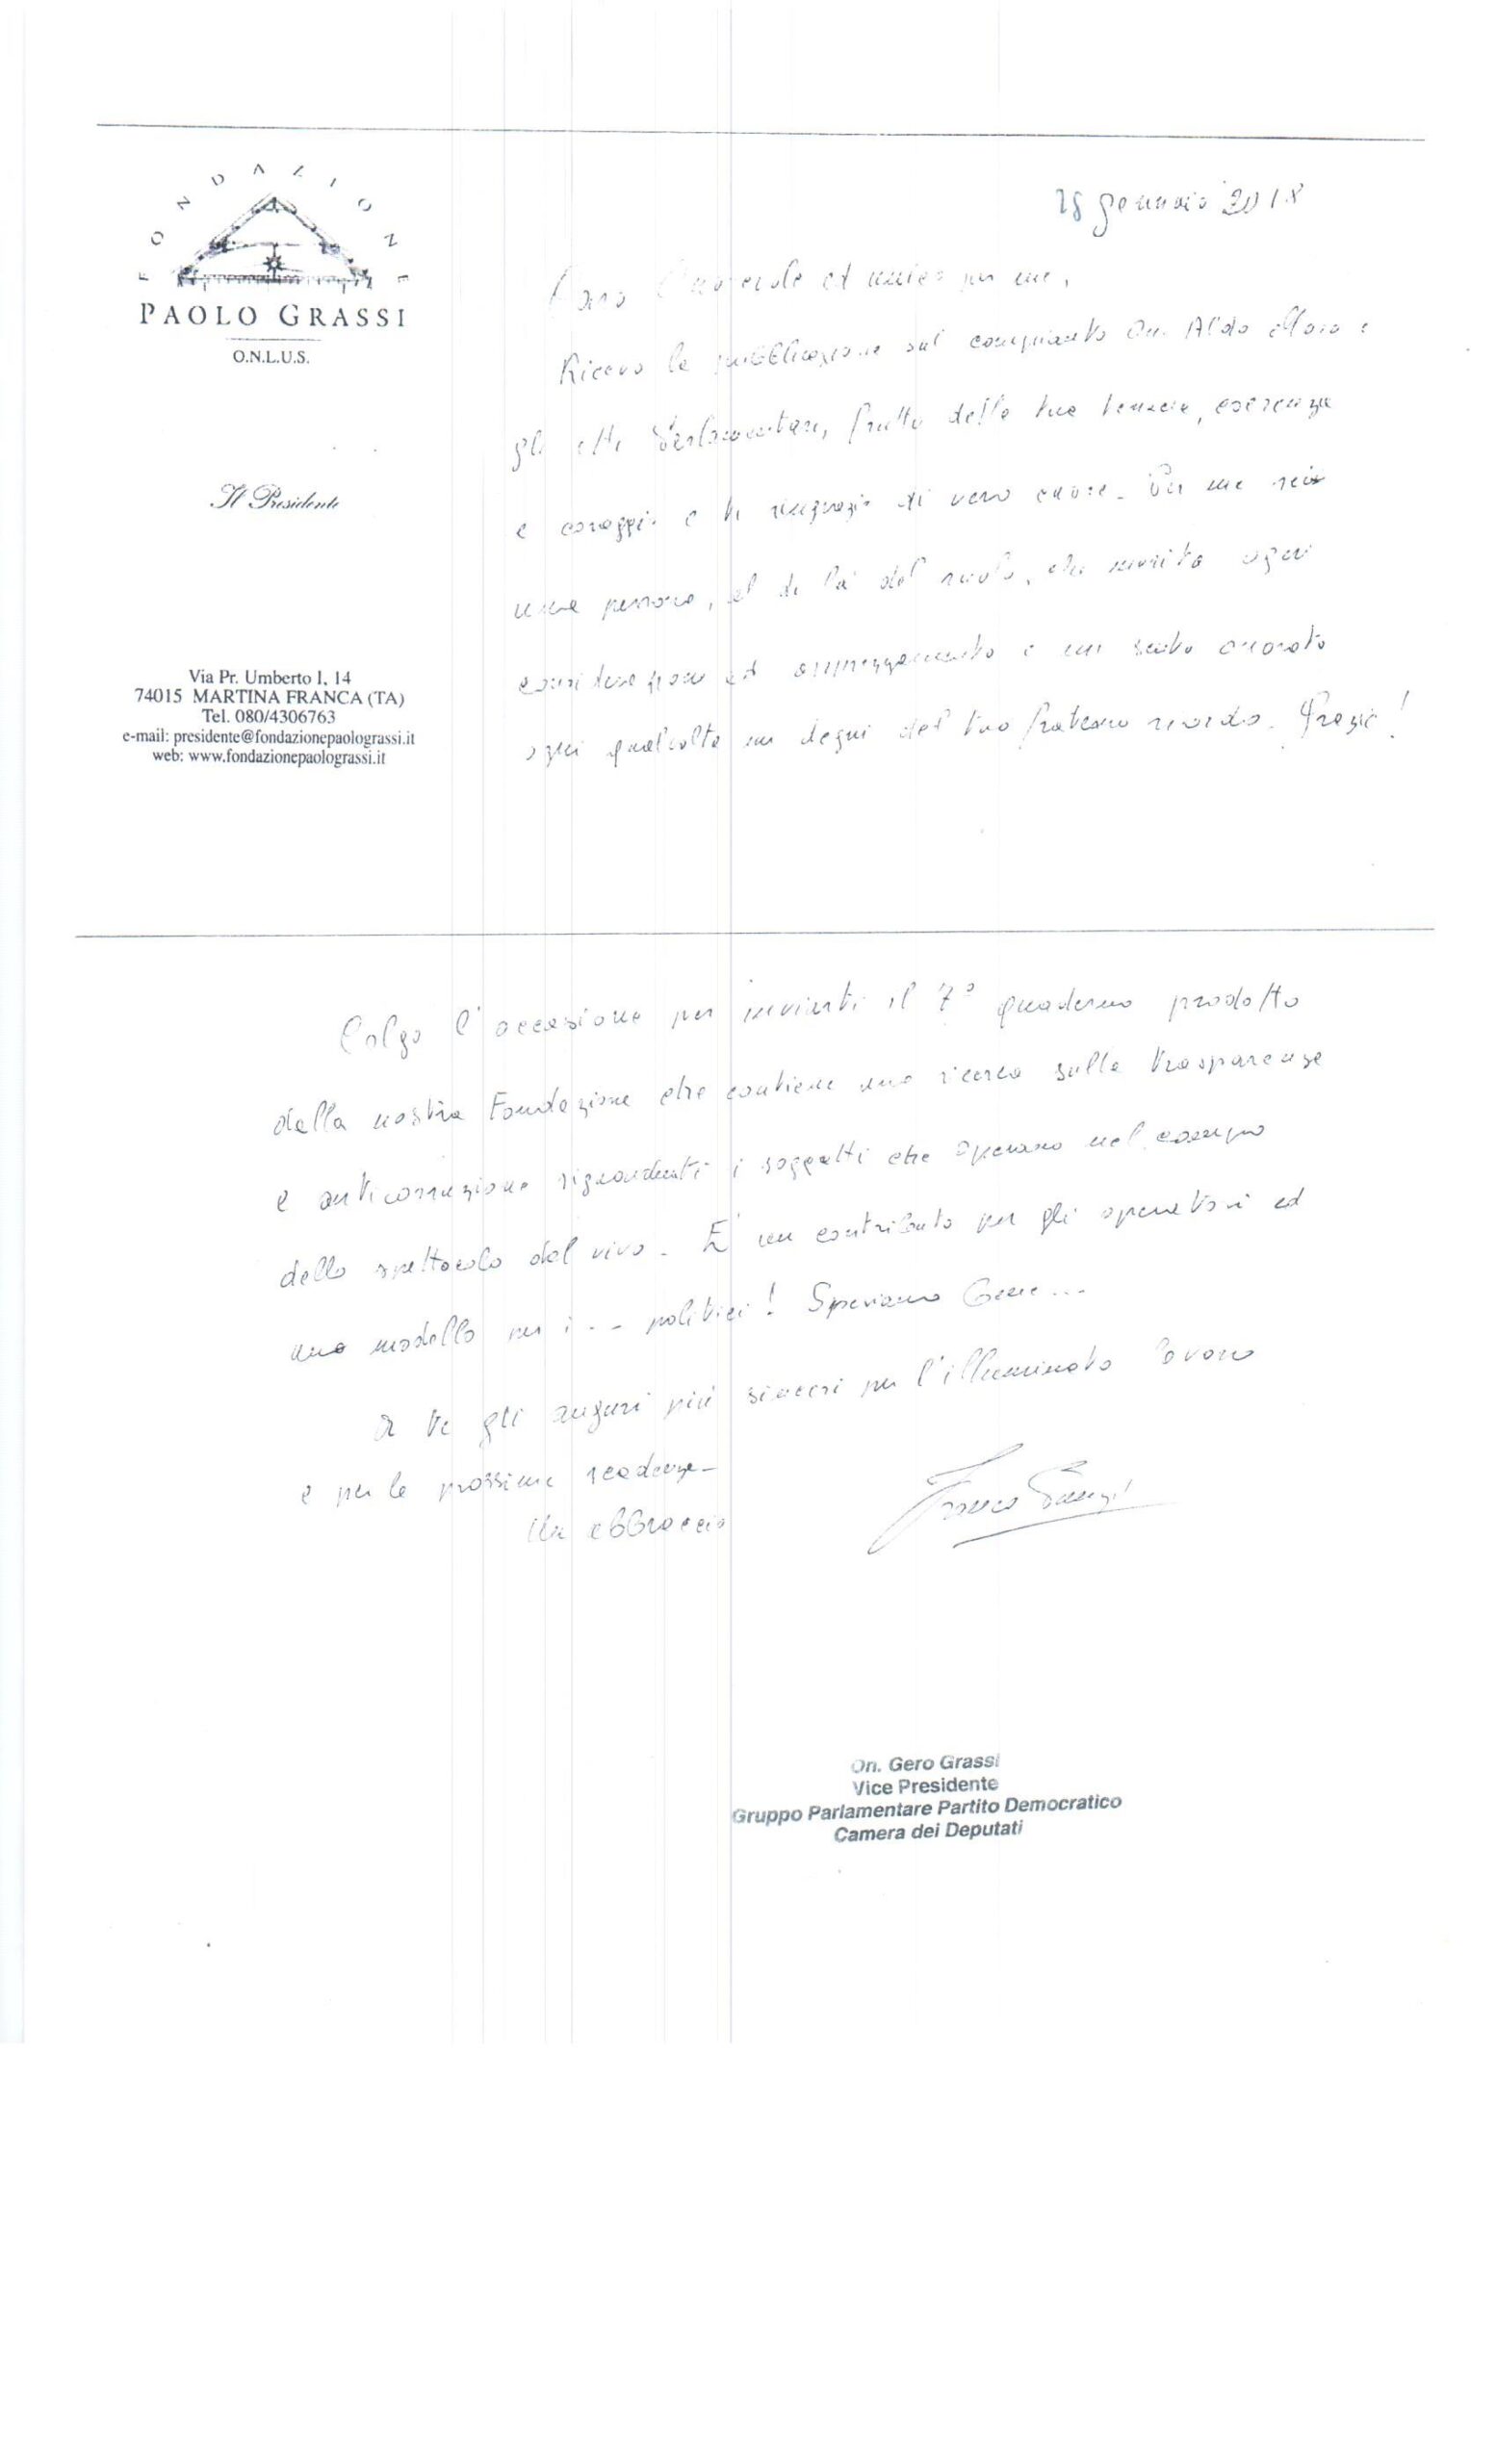 FONDAZIONE
PAOLO GRASSI
O.N.L.U.S.
Il Presidente
Via Pr. Umberto I, 14
74015 MARTINA FRANCA (TA)
Tel. 080/4306763
e-mail: presidente@fondazionepaolograssi.it
web: www.fondazionepaolograssi.it
gennaio 2018
Caro Onorevole ed amico per me,
Ricevo la pubblicazione sul compianto On. Aldo Moro e
gli atti Parlamentari, frutto della tua tenacia, coerenza
e coraggio e ti ringrazio di vero cuore. Per me sei
una persona, al di là del ruolo, che merita ogni
considerazione ed apprezzamento e mi sento onorato
ogni qualvolta mi degni del tuo fraterno ricordo. Grazie!
Colgo l'occasione per inviarti il 7° quaderno prodotto
dalla nostra Fondazione che contiene una ricerca sulla trasparenza
e anticorruzione riguardanti i soggetti che operano nel campo
dello spettacolo dal vivo. E' un contributo per gli operatori ed
uno modello per i... politici! Speriamo bene...
A te gli auguri più sinceri per l'illuminato lavoro
e per le prossime scadenze.
Un abbraccio
Franco
On. Gero Grassi
Vice Presidente
Gruppo Parlamentare Partito Democratico
Camera dei Deputati